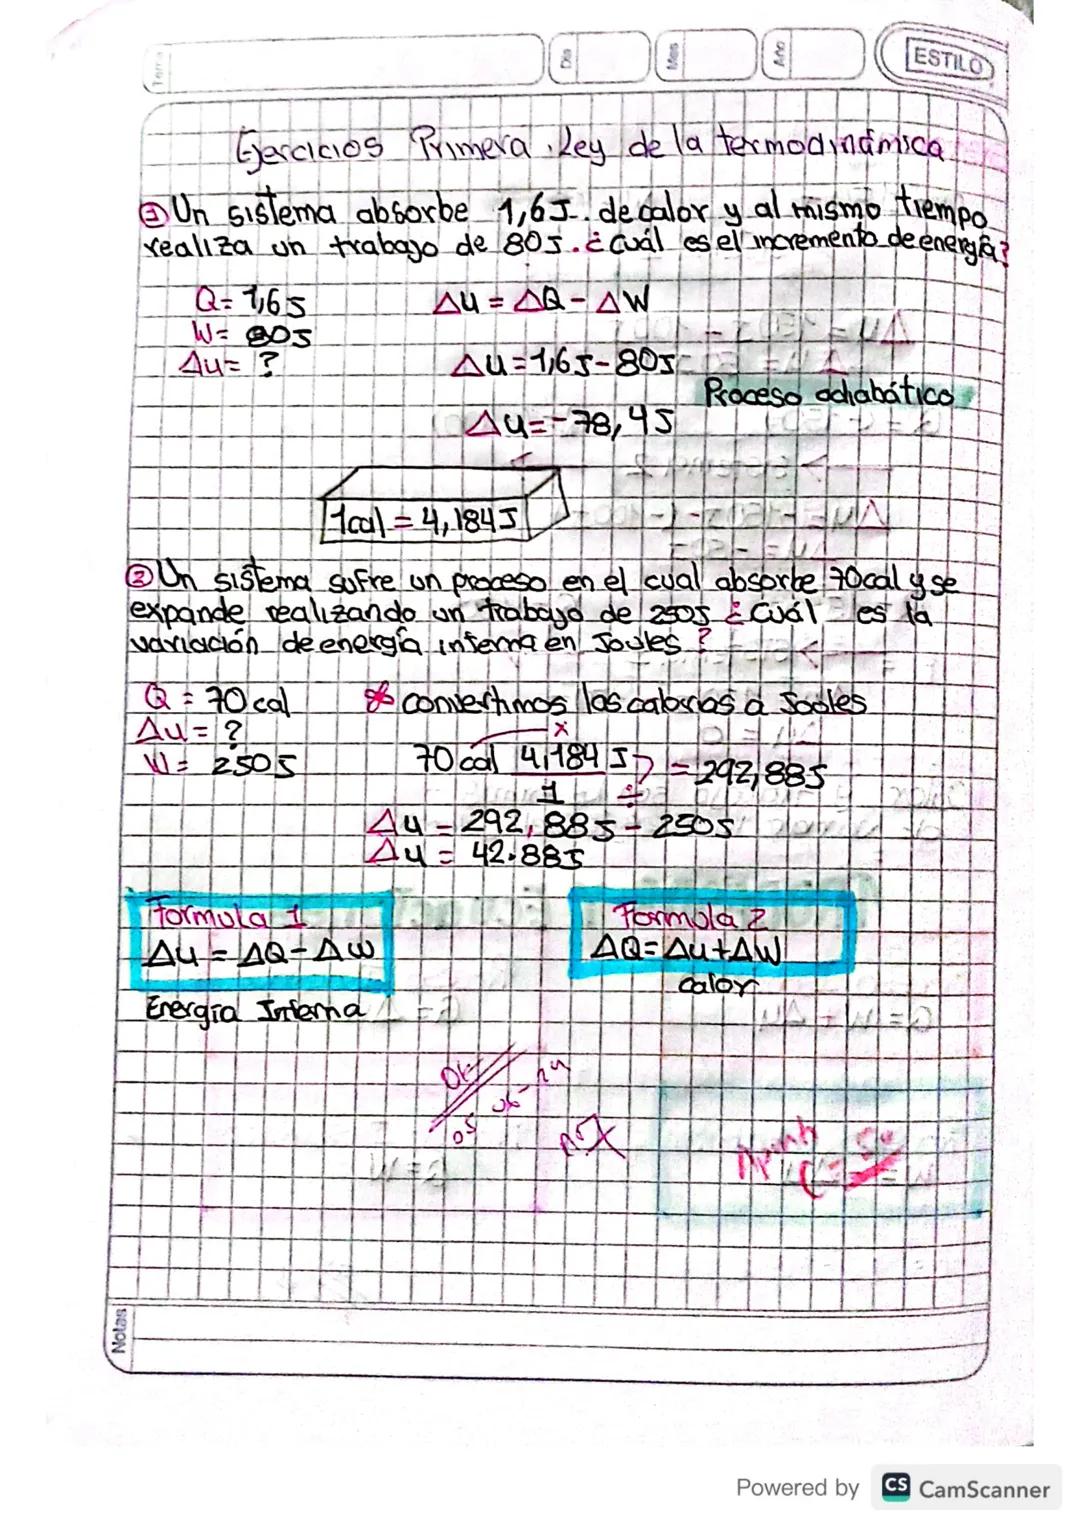 Tema
Dia
Mes
Año
ESTILO
Ejercicios Primera Ley de la termodinámica
① Un sistema absorbe 1,6J. de calor y al mismo tiempo
realiza un trabajo de 80J. ¿Cuál es el incremento de energía?
Q= 1,6J
ΔU = ΔQ - ΔW
W= 80J
ΔU= ?
ΔU=1,6J-80J
Proceso adiabático
ΔU=-78,4J
1cal = 4,184J
② Un sistema sufre un proceso en el cual absorbe 70cal y se
expande realizando un trabajo de 250J ¿Cuál es la
variación de energía interna en Joules?
Q = 70 cal
* convertimos las calorias a Joules
ΔU = ?
W = 250J
70 cal 4,184 J = 292,88J
x
1 ÷
ΔU = 292,88J - 250J
ΔU = 42.88J
Formula 1
ΔU = ΔQ - ΔW
Energía Interna
Formula 2
ΔQ= ΔU+ΔW
calor
Notas
Powered by CS CamScanner